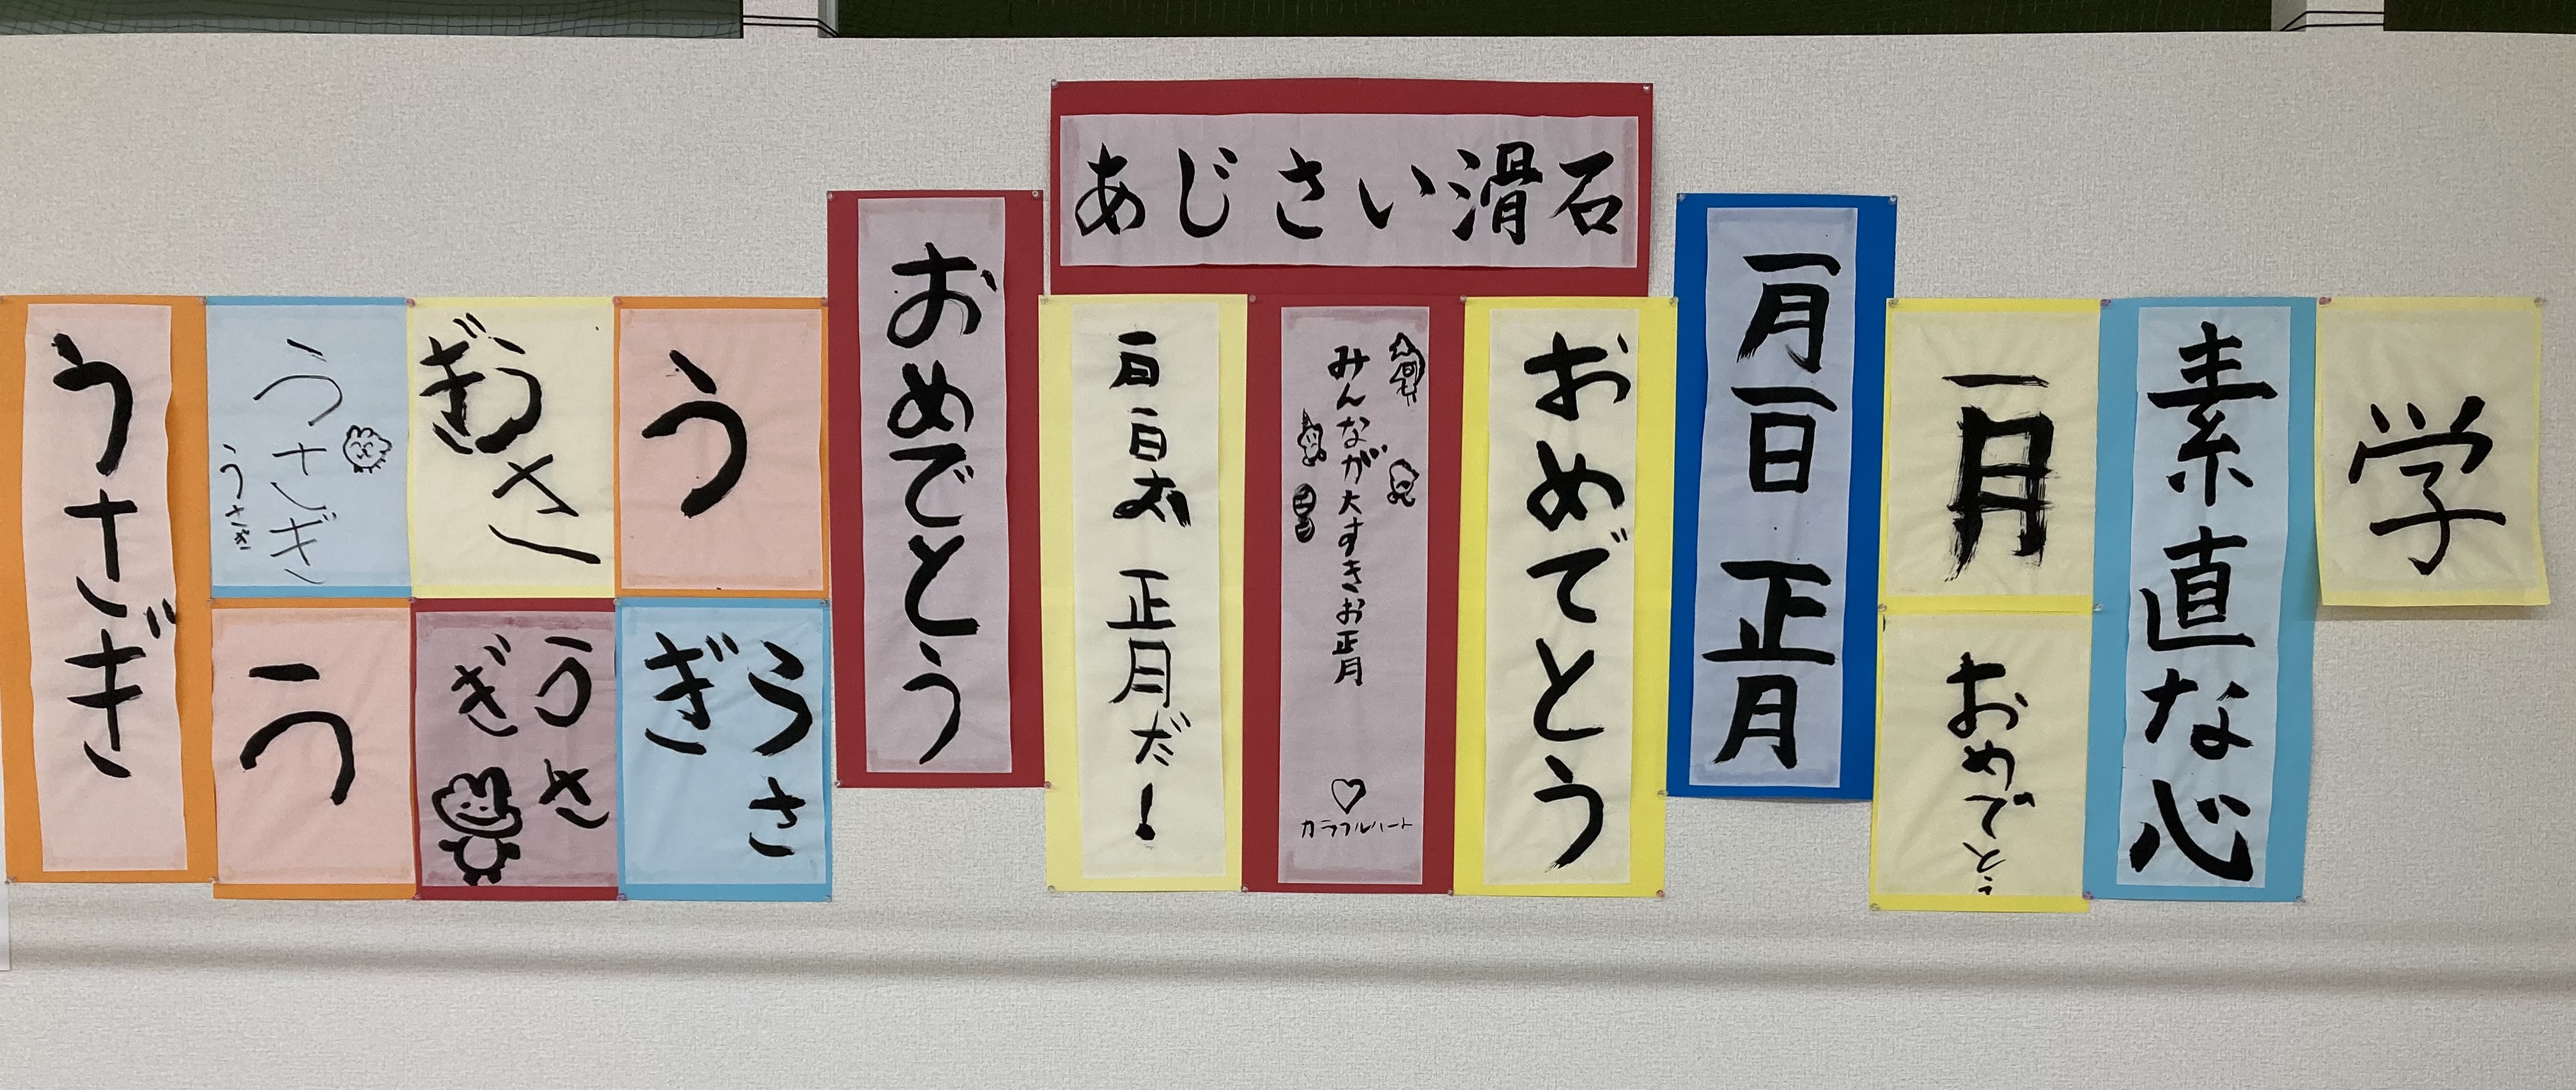 あじさい滑石
学
素直な心
一月
おめでとう
一月一日 正月
おめでとう
みんなが大すきお正月
カラフルハート
正月だ！
おめでとう
う
うさ
ぎ
うさ
ぎ
うさ
ぎ
うさぎ
うさぎ
う
うさぎ